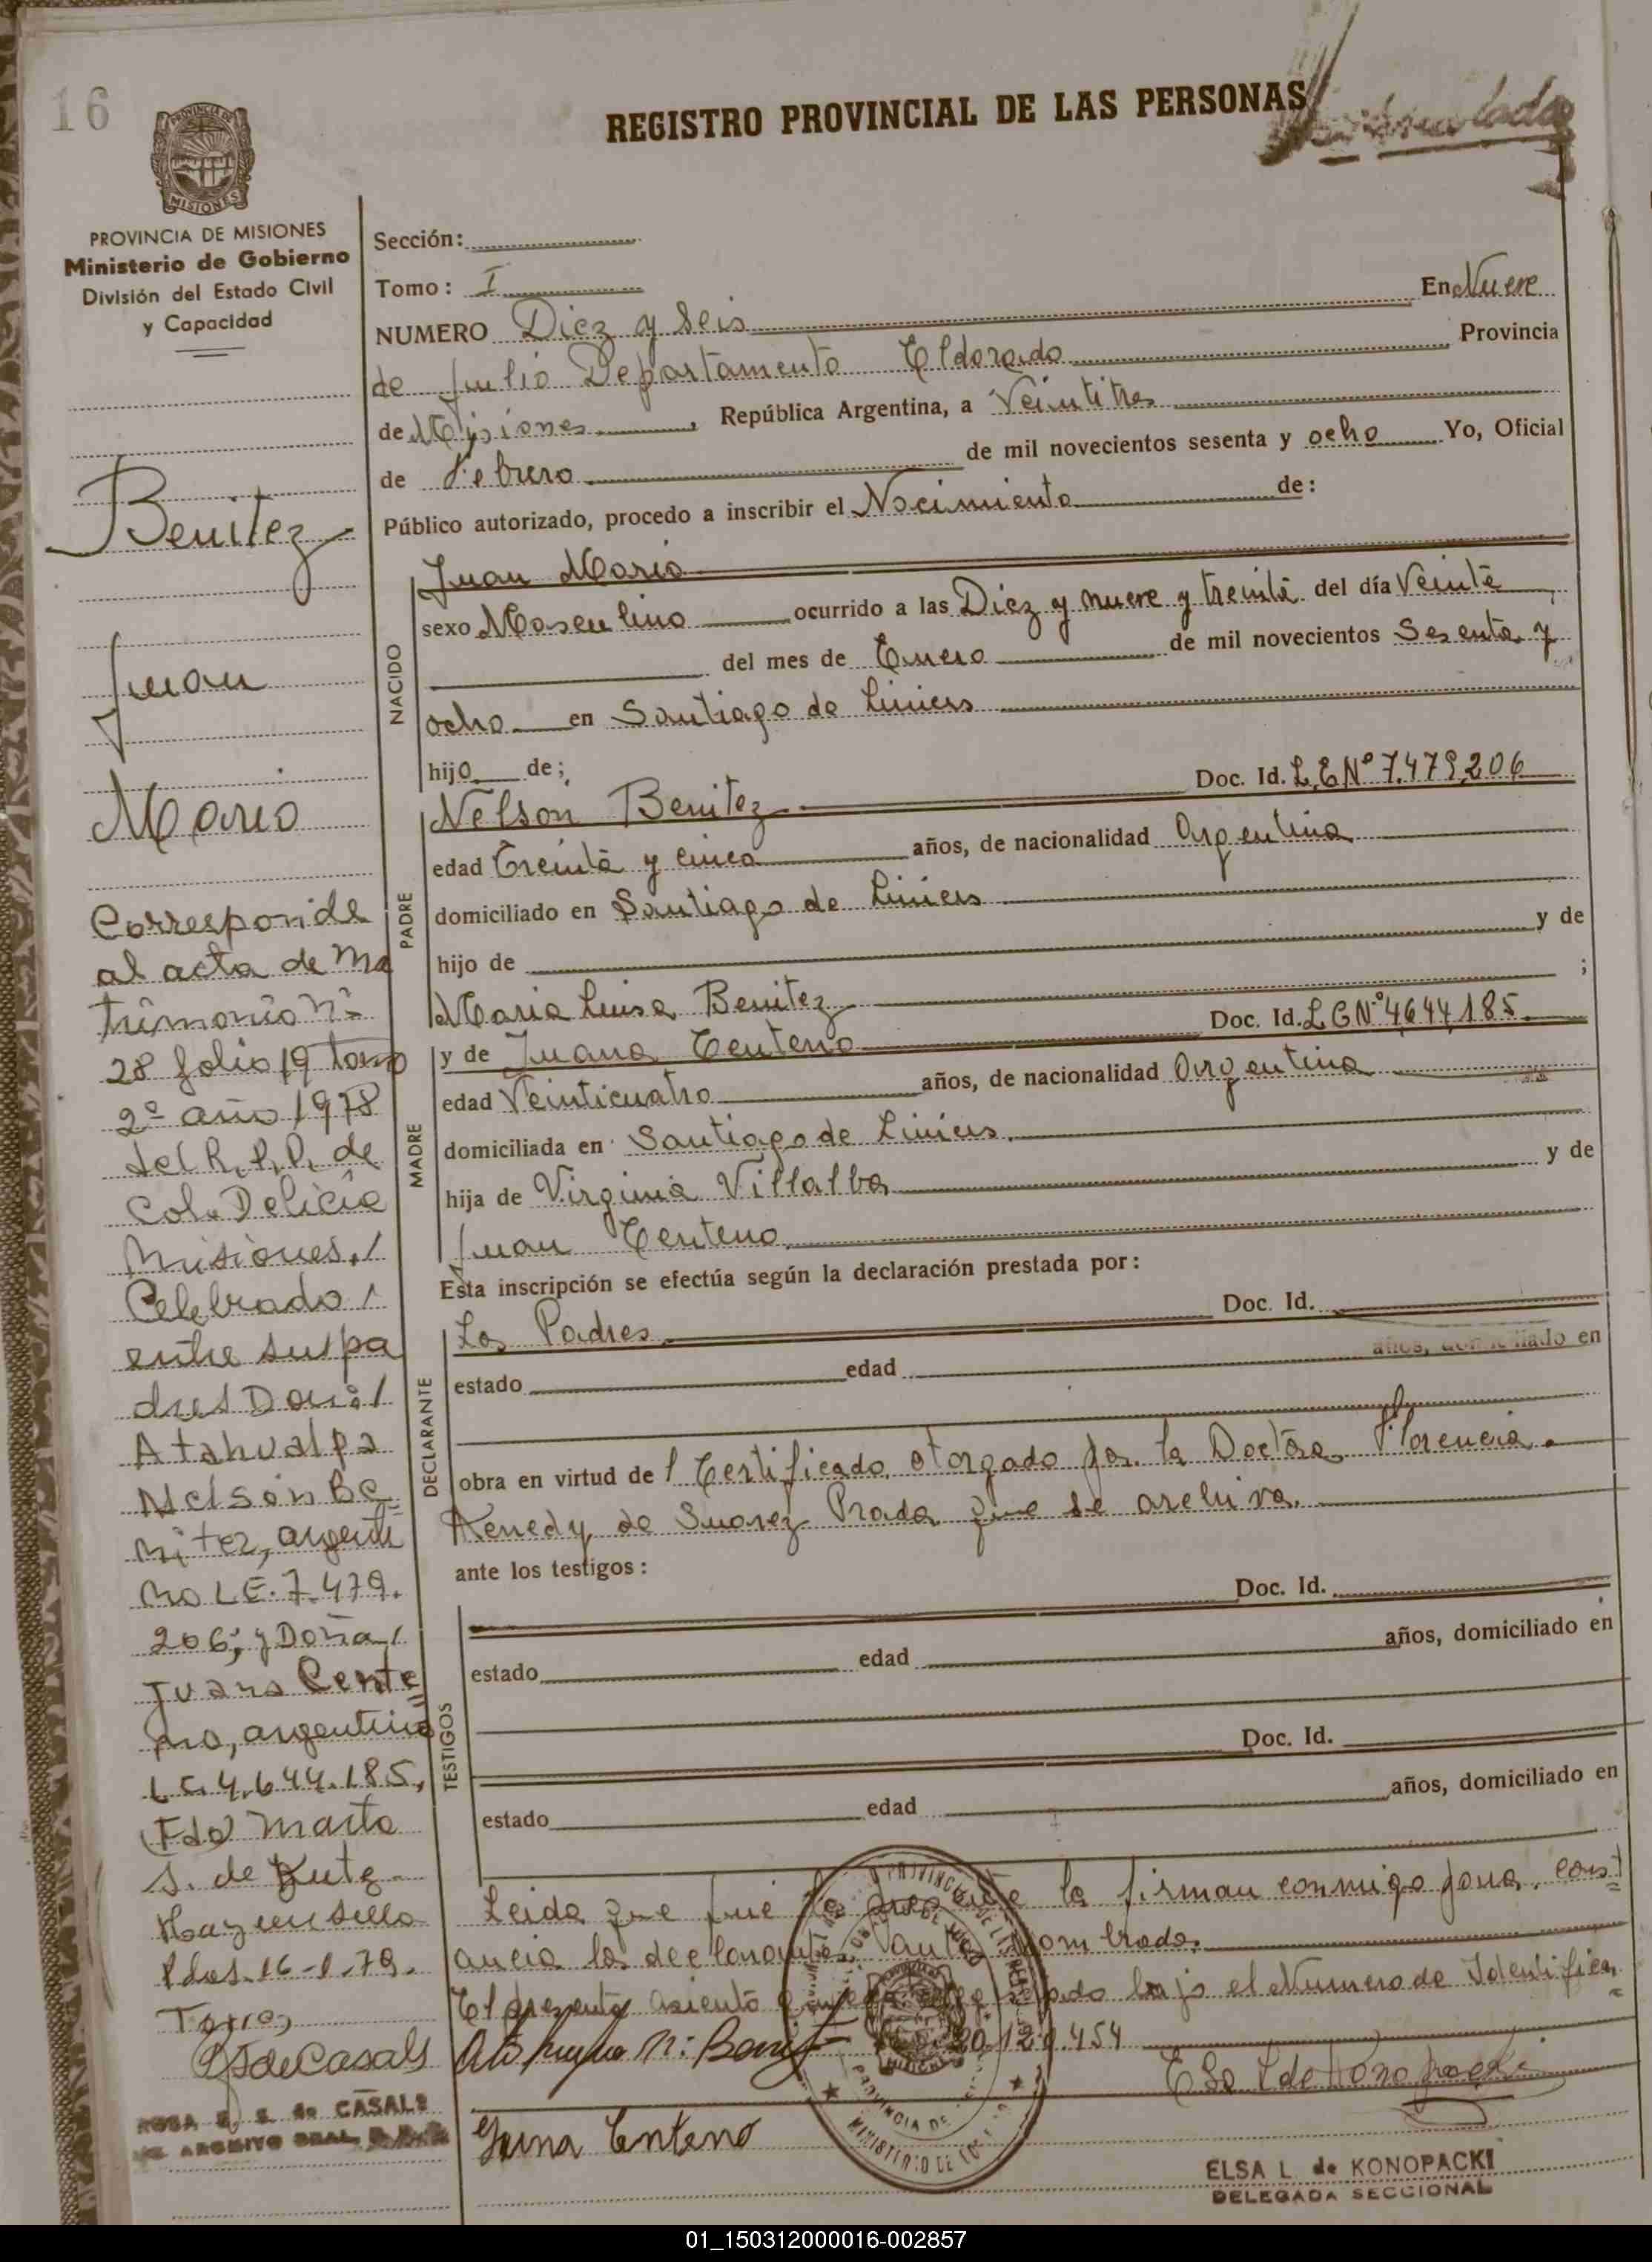 16
REGISTRO PROVINCIAL DE LAS PERSONAS
PROVINCIA DE
MISIONES
PROVINCIA DE MISIONES
Ministerio de Gobierno
División del Estado Civil
y Capacidad
Benitez
Juan
Mario
Corresponde
al acta de Ma
trimonio Nº
28 folio 19 tomo
2º año 1978
del R. P. P. de
Col. Delicia
Misiones./
Celebrado/
entre sus pa
dres Don:/
Atahualpa
Nelson Be=
nitez, argenti
no L.E. 7.479.
206; y Doña/
Juana Cente=
no, argentina
L.C. 4.644.185,
(Fdo) Marta
S. de Kutz
Hay un sello
Pdas. 16-1-79.
Torres
ROSA E. S. de CASALS
Sección:
Tomo: I
NUMERO Diez y Seis En Nueve
de Julio Departamento Eldorado Provincia
de Misiones, República Argentina, a Veintitres
de Febrero de mil novecientos sesenta y ocho Yo, Oficial
Público autorizado, procedo a inscribir el Nacimiento de:
NACIDO
Juan Mario
sexo Masculino ocurrido a las Diez y nueve y treinta del día Veinte
del mes de Enero de mil novecientos Sesenta y
ocho en Santiago de Liniers
hijo de;
PADRE
Nelson Benitez Doc. Id. L.E Nº 7.479.206
edad Treinta y cinco años, de nacionalidad Argentina
domiciliado en Santiago de Liniers
hijo de y de
Maria Luisa Benitez ;
MADRE
y de Juana Centeno Doc. Id. L C Nº 4.644.185.
edad Veinticuatro años, de nacionalidad Argentina
domiciliada en Santiago de Liniers.
hija de Virginia Villalba y de
Juan Centeno
Esta inscripción se efectúa según la declaración prestada por:
DECLARANTE
Los Padres Doc. Id.
estado edad años, domiciliado en
obra en virtud de l Certificado otorgado por la Doctora Florencia
Kenedy de Suarez Prada que se archiva.
ante los testigos:
TESTIGOS
Doc. Id.
estado edad años, domiciliado en
Doc. Id.
estado edad años, domiciliado en
Leida que fue la presente la firman conmigo para cons=
tancia los declarantes antes nombrado.
El presente asiento queda registrado bajo el Numero de Identifica=
20.120.454
Juana Centeno
ELSA L. de KONOPACKI
DELEGADA SECCIONAL
01_150312000016-002857